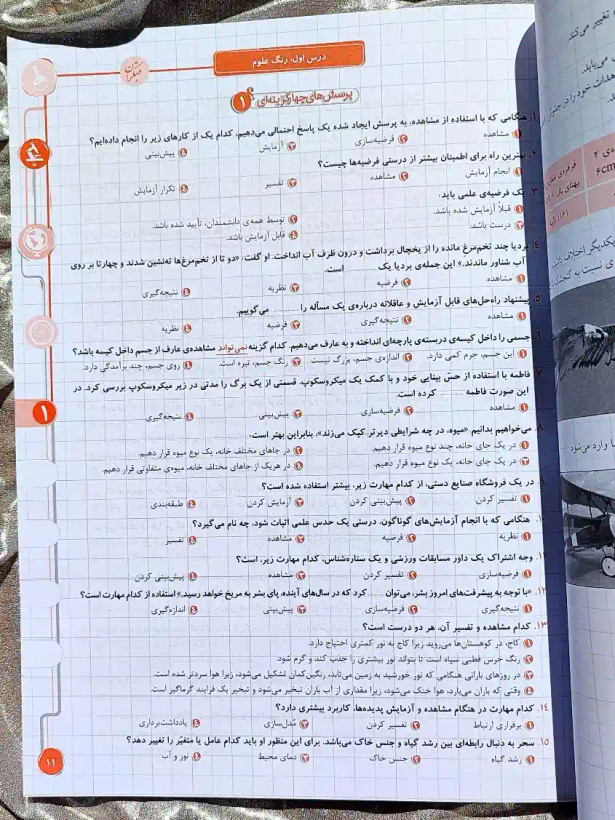 درس اول: زنگ علوم
مبتکران
پرسش‌های چهارگزینه‌ای ۱
۱. هنگامی که با استفاده از مشاهده، به پرسش ایجاد شده یک پاسخ احتمالی می‌دهیم، کدام یک از کارهای زیر را انجام داده‌ایم؟
۱ مشاهده ۲ فرضیه‌سازی ۳ آزمایش ۴ پیش‌بینی
۲. بهترین راه برای اطمینان بیشتر از درستی فرضیه‌ها چیست؟
۱ انجام آزمایش ۲ مشاهده ۳ تفسیر ۴ تکرار آزمایش
۳. یک فرضیه‌ی علمی باید:
۱ قبلاً آزمایش شده باشد. ۲ توسط همه‌ی دانشمندان، تأیید شده باشد.
۳ درست باشد. ۴ قابل آزمایش باشد.
۴. بردیا چند تخم‌مرغ مانده را از یخچال برداشت و درون ظرف آب انداخت. او گفت: «دو تا از تخم‌مرغ‌ها ته‌نشین شدند و چهارتا بر روی
آب شناور ماندند.» این جمله‌ی بردیا یک .......... است.
۱ مشاهده ۲ فرضیه ۳ نظریه ۴ نتیجه‌گیری
۵. پیشنهاد راه‌حل‌های قابل آزمایش و عاقلانه درباره‌ی یک مسأله را .......... می‌گوییم.
۱ مشاهده ۲ نتیجه‌گیری ۳ فرضیه ۴ نظریه
۶. جسمی را داخل کیسه‌ی دربسته‌ی پارچه‌ای انداخته و به عارف می‌دهیم. کدام گزینه نمی‌تواند مشاهده‌ی عارف از جسم داخل کیسه باشد؟
۱ این جسم، جرم کمی دارد. ۲ اندازه‌ی جسم، بزرگ نیست ۳ رنگ جسم، تیره است. ۴ روی جسم، چند برآمدگی دارد.
۷. فاطمه با استفاده از حسّ بینایی خود و با کمک یک میکروسکوپ، قسمتی از یک برگ را مدتی در زیر میکروسکوپ بررسی کرد. در
این صورت فاطمه .......... کرده است.
۱ مشاهده ۲ فرضیه‌سازی ۳ پیش‌بینی ۴ نتیجه‌گیری
۸. می‌خواهیم بدانیم «میوه، در چه شرایطی دیرتر کپک می‌زند»، بنابراین بهتر است:
۱ در یک جای خانه، چند نوع میوه قرار دهیم. ۲ در جاهای مختلف خانه، یک نوع میوه قرار دهیم
۳ در یک جای خانه، یک نوع میوه قرار دهیم. ۴ در هریک از جاهای مختلف خانه، میوه‌ی متفاوتی قرار دهیم.
۹. در یک فروشگاه صنایع دستی، از کدام مهارت زیر، بیشتر استفاده شده است؟
۱ تفسیر کردن ۲ پیش‌بینی کردن ۳ آزمایش کردن ۴ طبقه‌بندی
۱۰. هنگامی که با انجام آزمایش‌های گوناگون، درستی یک حدس علمی اثبات شود، چه نام می‌گیرد؟
۱ نظریه ۲ فرضیه ۳ مشاهده ۴ تفسیر
۱۱. وجه اشتراک یک داور مسابقات ورزشی و یک ستاره‌شناس، کدام مهارت زیر، است؟
۱ فرضیه‌سازی ۲ تفسیر کردن ۳ مشاهده ۴ پیش‌بینی کردن
۱۲. «با توجه به پیشرفت‌های امروز بشر، می‌توان .......... کرد که در سال‌های آینده، پای بشر به مریخ خواهد رسید.» استفاده از کدام مهارت است؟
۱ نتیجه‌گیری ۲ فرضیه‌سازی ۳ پیش‌بینی ۴ اندازه‌گیری
۱۳. کدام مشاهده و تفسیر آن، هر دو درست است؟
۱ کاج، در کوهستان‌ها می‌روید زیرا کاج به نور کمتری احتیاج دارد.
۲ رنگ خرس قطبی سیاه است تا بتواند نور بیشتری را جذب کند و گرم شود.
۳ در روزهای بارانی هنگامی که نور خورشید به زمین می‌تابد، رنگین‌کمان تشکیل می‌شود، زیرا هوا سردتر شده است.
۴ وقتی که باران می‌بارد، هوا خنک می‌شود، زیرا مقداری از آب باران تبخیر می‌شود و تبخیر یک فرایند گرماگیر است.
۱۴. کدام مهارت در هنگام مشاهده و آزمایش پدیده‌ها، کاربرد بیشتری دارد؟
۱ برقراری ارتباط ۲ تفسیر کردن ۳ مُدل‌سازی ۴ یادداشت‌برداری
۱۵. سحر به دنبال رابطه‌ای بین رشد گیاه و جنس خاک می‌باشد. برای این منظور او باید کدام عامل یا متغیّر را تغییر دهد؟
۱ رشد گیاه ۲ جنس خاک ۳ دمای محیط ۴ نور و آب
۱
۱۱